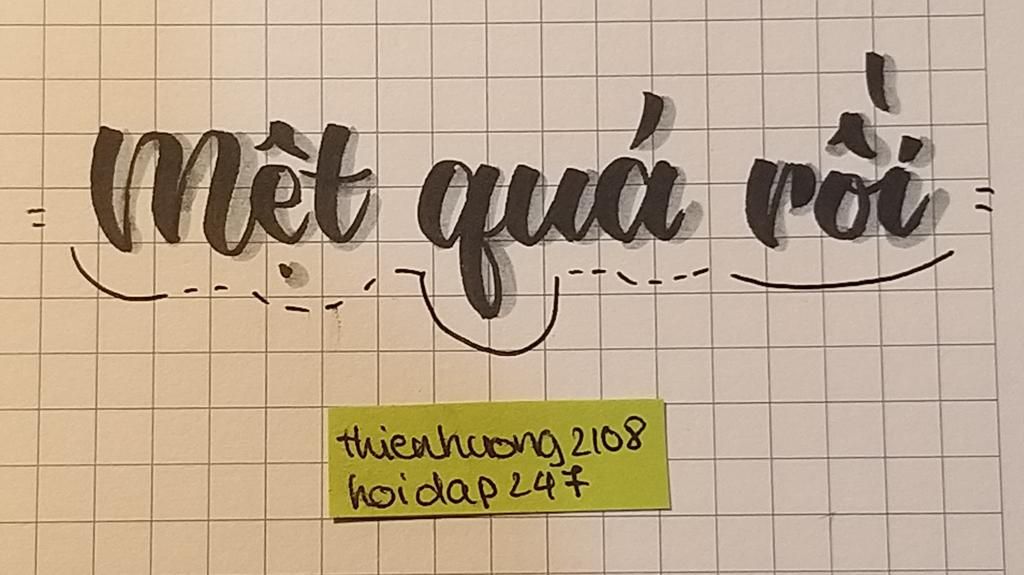 Mệt quá rồi
thienhuong2108
hoidap247